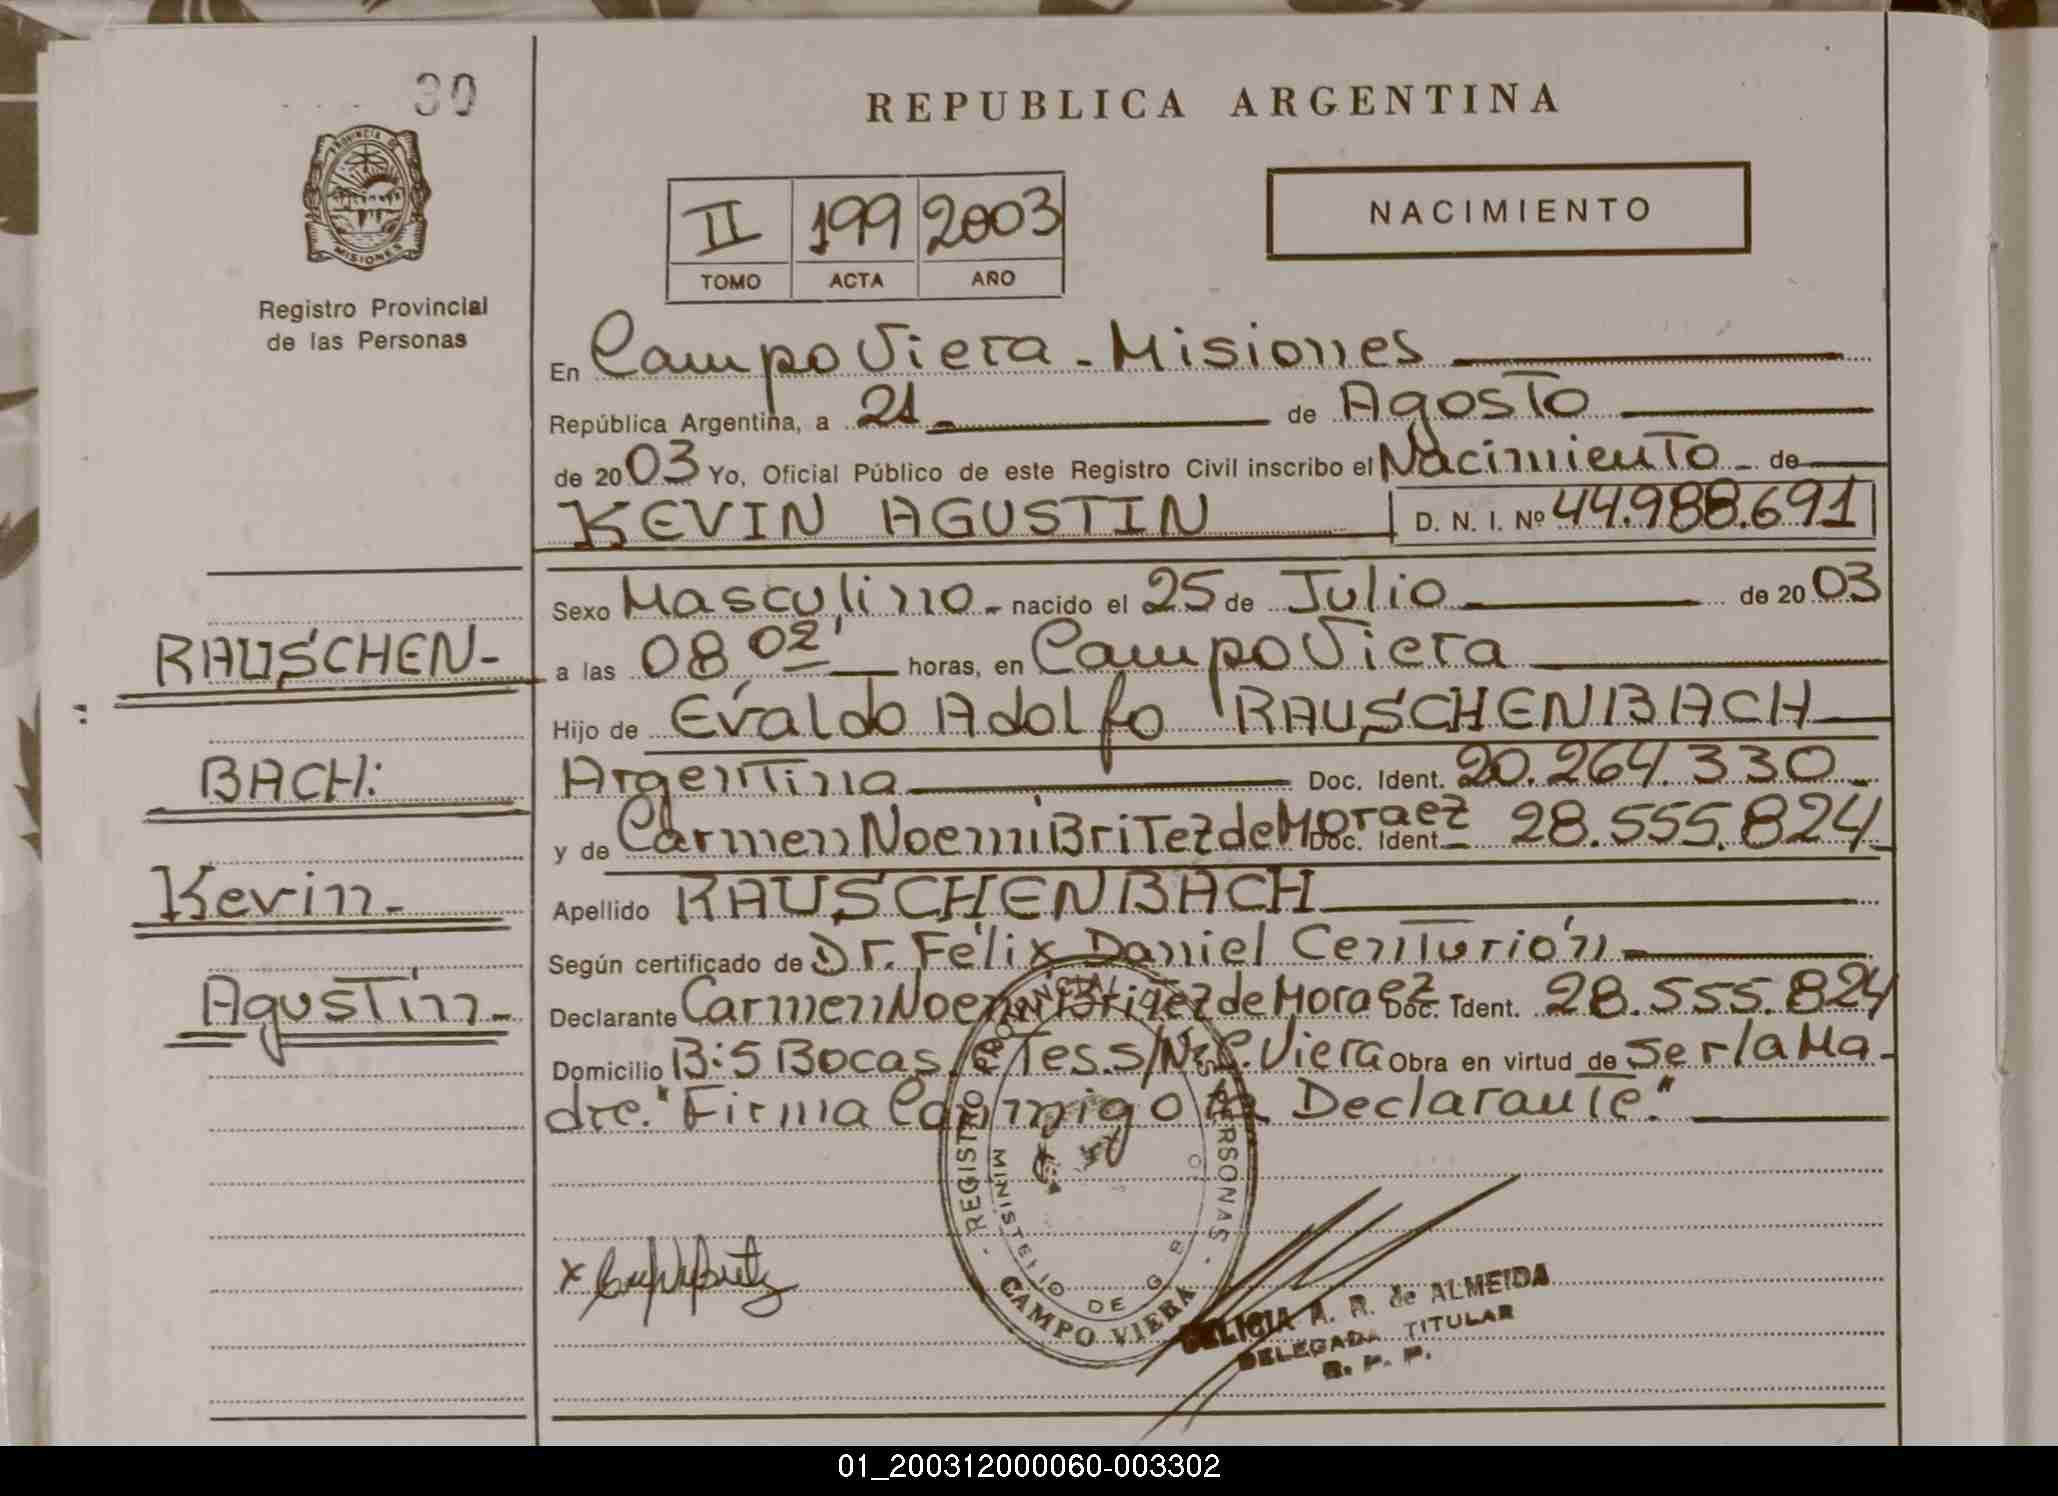 30
REPUBLICA ARGENTINA
PROVINCIA DE
MISIONES
Registro Provincial
de las Personas
II 199 2003
TOMO ACTA AÑO
NACIMIENTO
En Campo Viera - Misiones
República Argentina, a 21 de Agosto
de 2003 Yo, Oficial Público de este Registro Civil inscribo el Nacimiento de
KEVIN AGUSTIN D. N. I. Nº 44.988.691
Sexo Masculino - nacido el 25 de Julio de 2003
RAUSCHEN-
a las 08 02' horas, en Campo Viera
Hijo de Evaldo Adolfo RAUSCHENBACH
BACH:
Argentina Doc. Ident. 20.264.330
y de Carmen Noemi Britez de Moraez Doc. Ident. 28.555.824
Kevin-
Apellido RAUSCHENBACH
Según certificado de Dr. Félix Daniel Centurión
Agustín-
Declarante Carmen Noemi Britez de Moraez Doc. Ident. 28.555.824
Domicilio B: 5 Bocas Tes. S/Nº C. Viera Obra en virtud de ser la Ma-
dre. "Firma Conmigo la Declarante."
REGISTRO PROVINCIAL PERSONAS
MINISTERIO DE G
CAMPO VIERA
DELICIA A. R. de ALMEIDA
DELEGADA TITULAR
R. P. P.
01_200312000060-003302